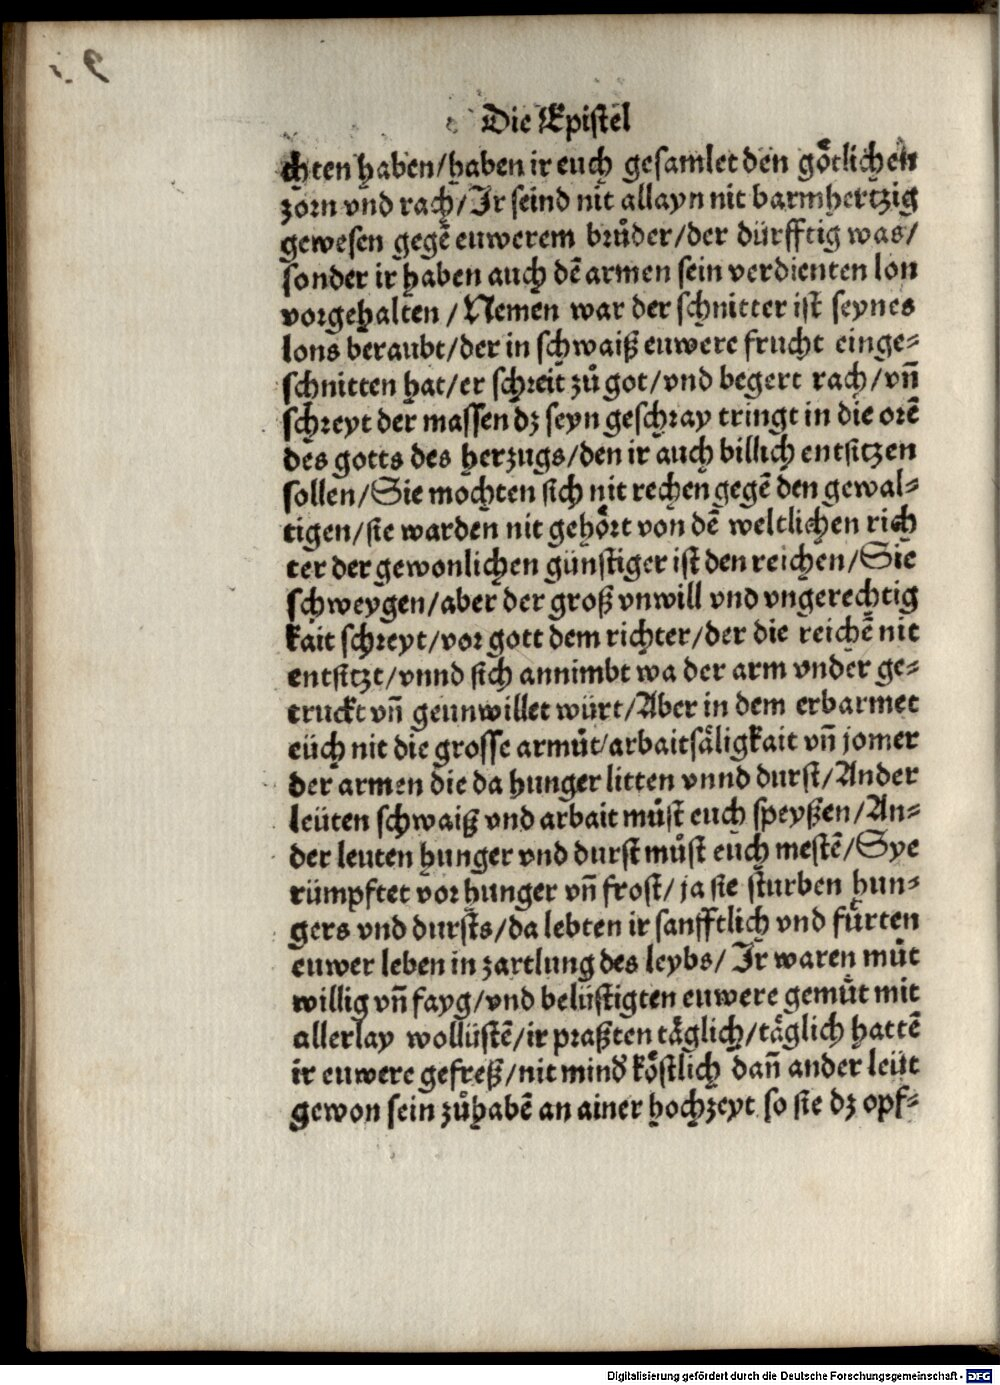 Die Epistel
chten haben/haben ir euch gesamlet den goͤtlichen
zorn vnd rach/Ir seind nit allayn nit barmhertzig
gewesen gegē euwerem bruͦder/der dürfftig was/
sonder ir haben auch dē armen sein verdienten lon
vorgehalten/Nemen war der schnitter ist seynes
lons beraubt/der in schwaiß euwere frucht einge⸗
schnitten hat/er schreit zuͦ got/vnd begert rach/vn̄
schreyt der massen dz seyn geschray tringt in die orē
des gotts des herzugs/den ir auch billich entsitzen
sollen/Sie mochten sich nit rechen gegē den gewal⸗
tigen/sie warden nit gehoͤrt von dē weltlichen rich
ter der gewonlichen günstiger ist den reichen/Sie
schweygen/aber der groß vnwill vnd vngerechtig
kait schreyt/vor gott dem richter/der die reichē nit
entsitzt/vnnd sich annimbt wa der arm vnder ge⸗
truckt vn̄ geunwillet würt/Aber in dem erbarmet
eüch nit die grosse armuͦt/arbaitsaͤligkait vn̄ jomer
der armen die da hunger litten vnnd durst/Ander
leüten schwaiß vnd arbait muͦst euch speyßen/An⸗
der leuten hunger vnd durst muͦst euch mestē/Sye
rümpftet vor hunger vn̄ frost/ja sie sturben hun⸗
gers vnd dursts/da lebten ir sanfftlich vnd fuͤrten
euwer leben in zartlung des leybs/Ir waren muͦt
willig vn̄ fayg/vnd belüstigten euwere gemuͤt mit
allerlay wollüstē/ir praßten taͤglich/taͤglich hattē
ir euwere gefreß/nit mind̓ koͤstlich dan̄ ander leüt
gewon sein zuͦhabē an ainer hochzeyt so sie dz opf⸗
Digitalisierung gefördert durch die Deutsche Forschungsgemeinschaft - DFG